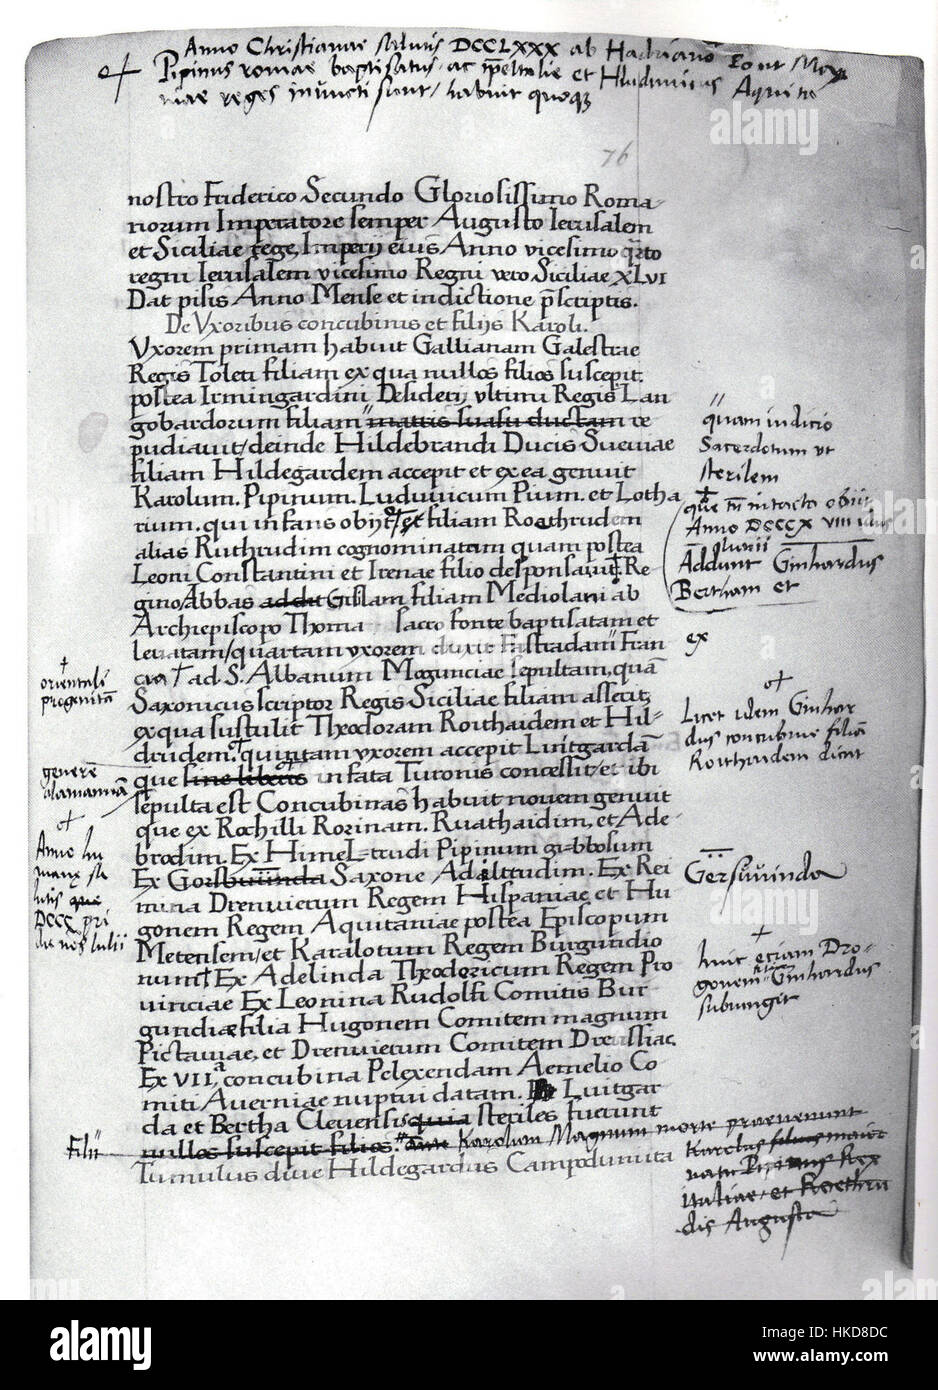 Anno Christianae salutis DCCLXXX ab Hadriano
Pipinus romae baptisatus ac Italie et Hludovicus Aquita
niae reges inuncti sunt, habuit quoque
76
nostro Friderico Secundo Gloriosissimo Roma-
norum Imperatore semper Augusto Ierusalem
et Siciliae rege, Imperij eius Anno vicesimo qrto
regni Ierusalem vicesimo Regni vero Siciliae XLVI
Dat pisis Anno Mense et indictione pscriptis.
De Vxoribus concubinis et filijs Karoli.
Vxorem primam habuit Gallianam Galestrae
Regis Toleti filiam ex qua nullos filios suscepit.
postea Irmingardim Desiderij vltimi Regis Lan
gobardorum filiam matris suasu ductam re
pudiauit, deinde Hildebrandi Ducis Sueuae
filiam Hildegardem accepit et ex ea genuit
Karolum. Pipinum. Luduuicum Pium. et Lotha
rium. qui infans obijt, et filiam Roethrudem
alias Ruthrudim cognominatam quam postea
Leoni Constantini et Irenae filio desponsauit Re
gino Abbas addit Gislam filiam Mediolani ab
Archiepiscopo Thoma sacro fonte baptisatam et
leuatam, quartam vxorem duxit Fastradam Fran
cia ad S. Albanum Mogunciae sepultam, quā
Saxonicus scriptor Regis Siciliae filiam asserit,
ex qua sustulit Theodoram Roithaidem et Hil-
drudem. quintam vxorem accepit Luitgardā
que sine liberis in fata Turonis concessit, et ibi
sepulta est Concubinas habuit novem genuit
que ex Rochilli Rorinam. Ruathaidim, et Ade-
brodim. Ex Himel-trudi Pipinum gibbosum
Ex Gorsbuuinda Saxone Adiltrudim. Ex Rei
mina Drenuietum Regem Hispaniae, et Hu
gonem Regem Aquitaniae postea Episcopum
Metensem, et Karalotum Regem Burgundio
num Ex Adelinda Theodoricum Regem Pro
vinciae Ex Leonina Rudolfi Comitis Bur
gundiae filia Hugonem Comitem magnum
Pictaviae, et Drenuietum Comitem Drensiac
Ex VII, a concubina Pelexendam Aemelio Co
miti Averniae nuptui datam. Luitgar
da et Bertha Clevensis quia steriles fuerunt
nullos suscepit filios. Karolum Magnum morte praevenerunt
Tumulus dive Hildegardus Campodunita
quam iudicio
Sacerdotum vt
sterilem
que intacta obijt
Anno DCCCX VIII idus
Iunii
Addunt Ginhardus
Bertham et
ex
Licet idem Ginhar
dus concubine filiā
Roithaidem dicat
Gersuuinda
huic etiam Dro-
gonem Ginhardus
subiungit
Karolus filius maior
natu Pipinus Rex
italiae, et Roethru
dis Augusta
orientali
progenitā
genere
alamannā
Anno hu
manae sa
lutis que
DCCCX pri
die nos Iulii
Filii
alamy
Image ID: HKD8DC
www.alamy.com